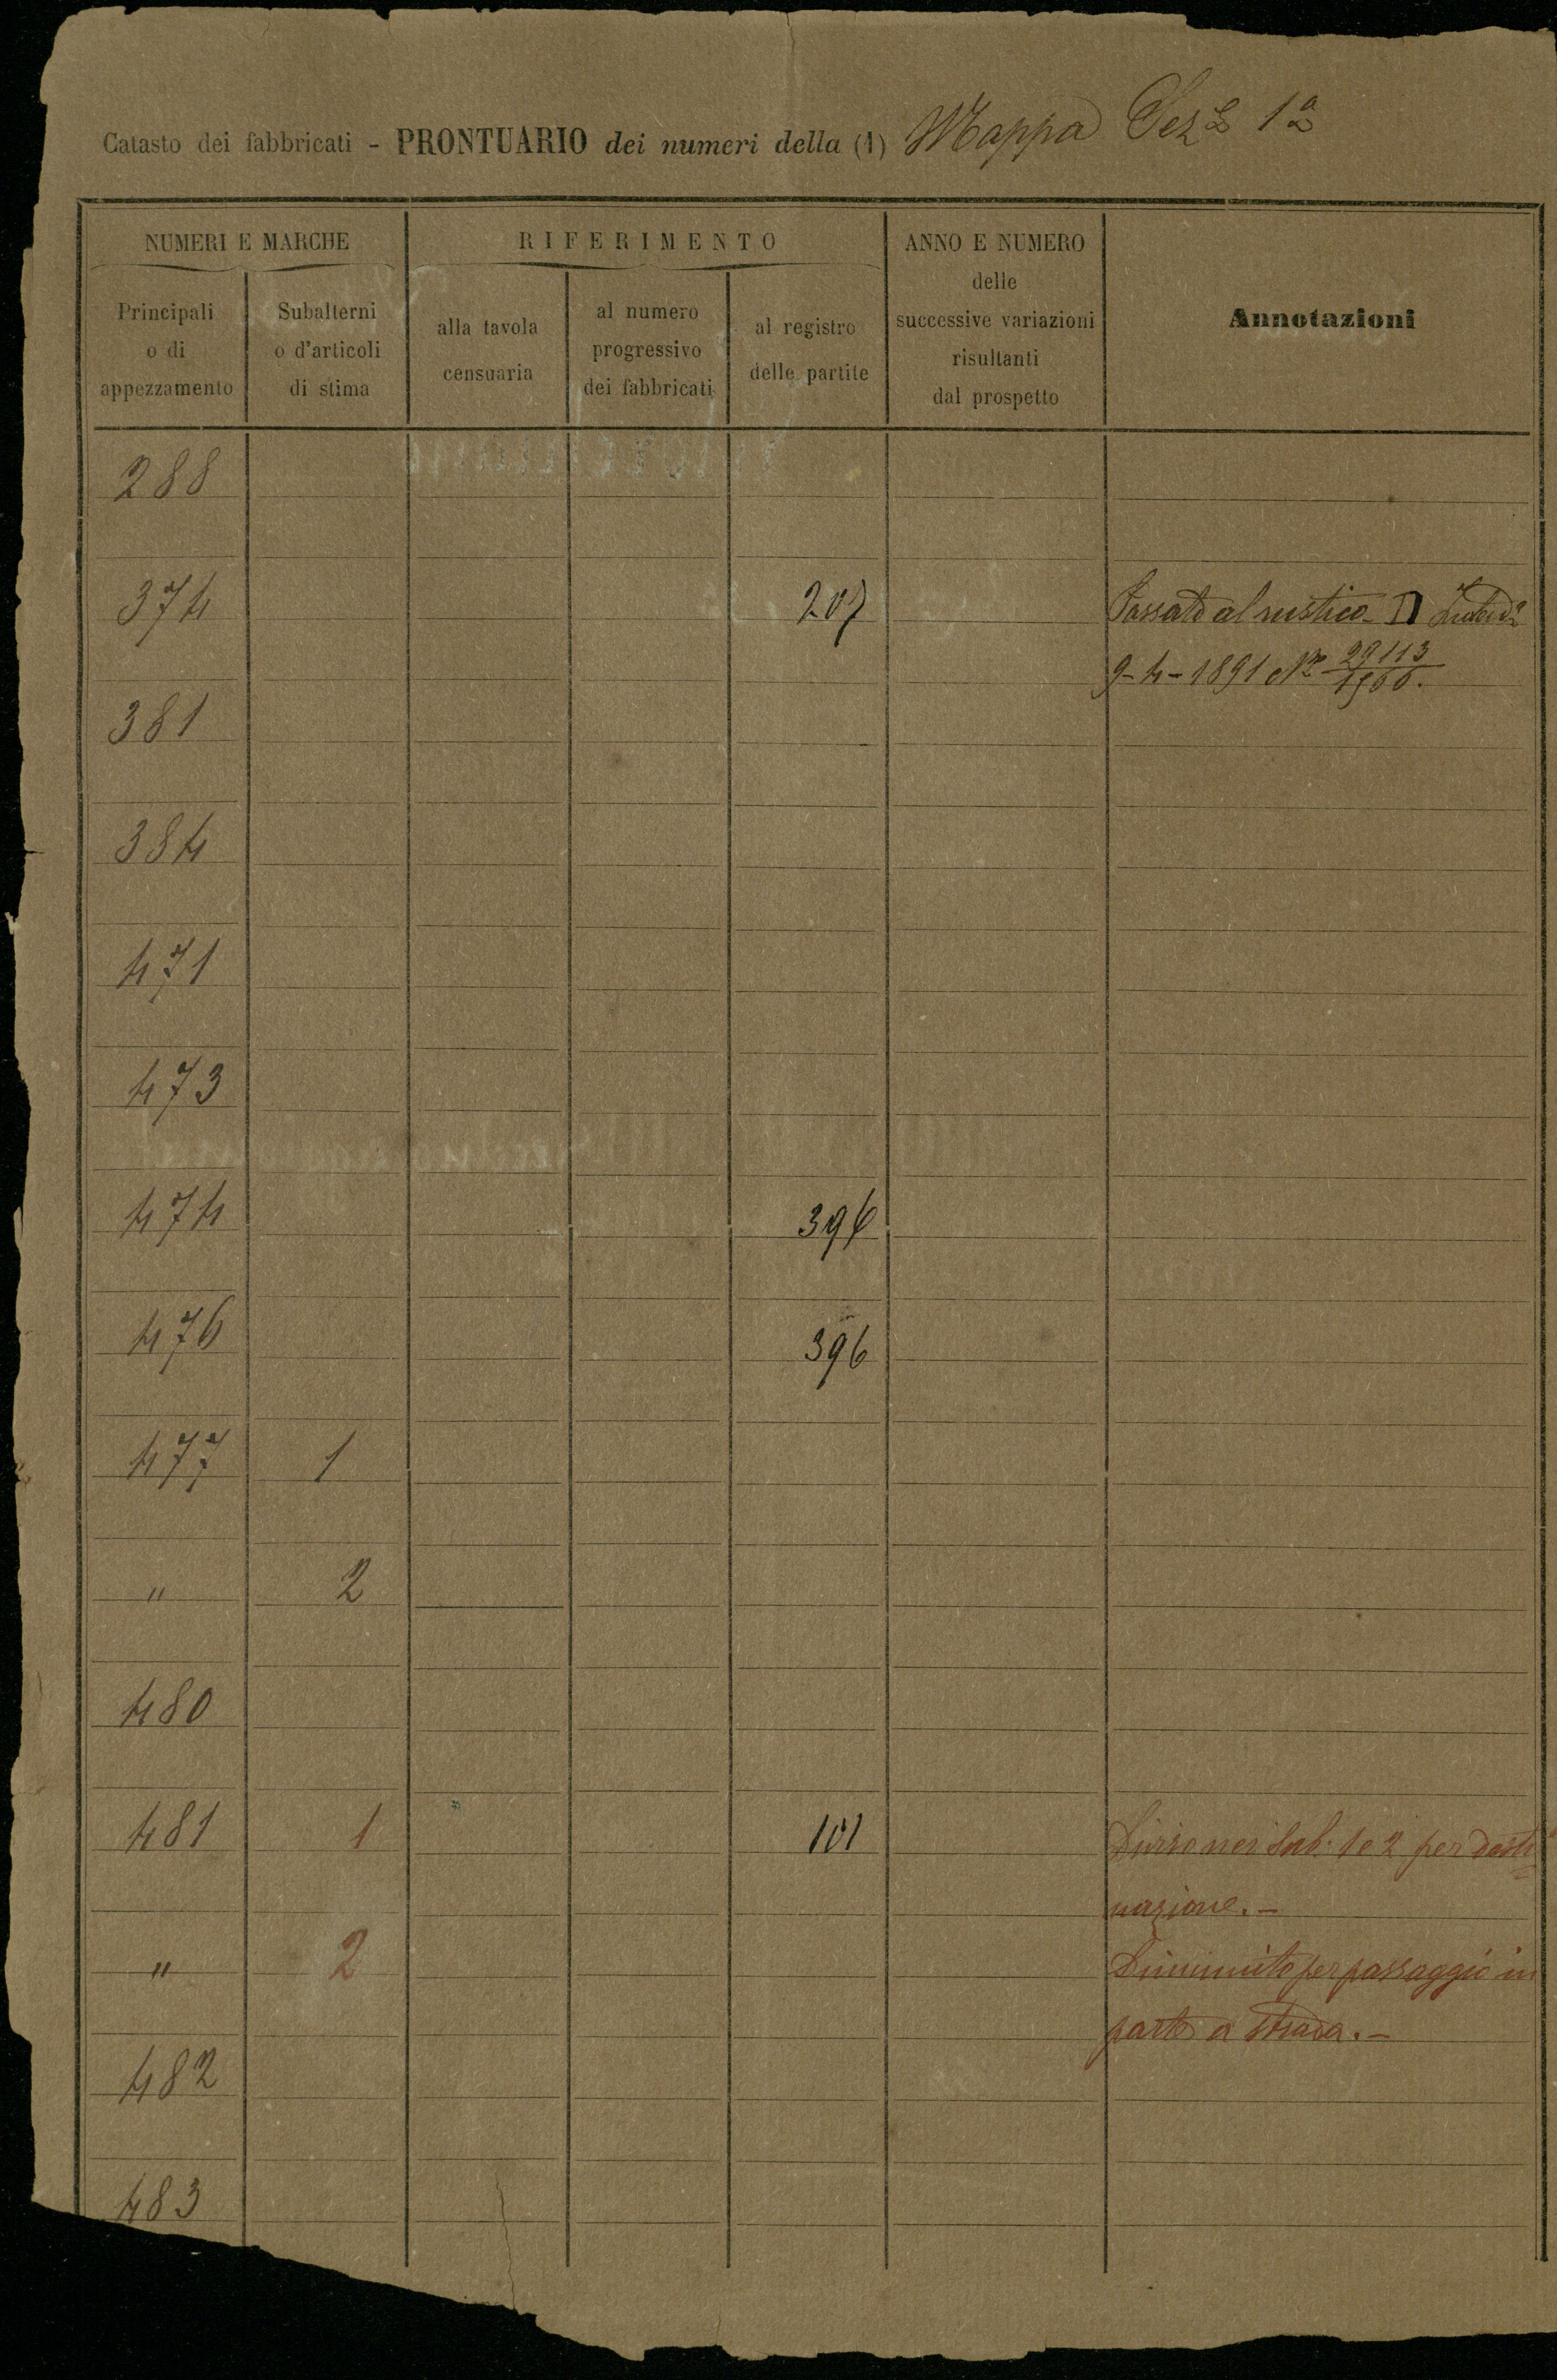 Catasto dei fabbricati - PRONTUARIO dei numeri della (1) Mappa Sez.e 1a
NUMERI E MARCHE
RIFERIMENTO
ANNO E NUMERO
delle
successive variazioni
risultanti
dal prospetto
Annotazioni
Principali
o di
appezzamento
Subalterni
o d'articoli
di stima
alla tavola
censuaria
al numero
progressivo
dei fabbricati
al registro
delle partite
288
374 207 Passato al rustico
9-4-1891 No 29113
381
384
471
473
474 396
476 396
477 1
" 2
480
481 1 101 Diviso nei Sub. 1 e 2 per desti
nazione. -
" 2 Diminuito per passaggio in
parte a strada. -
482
483